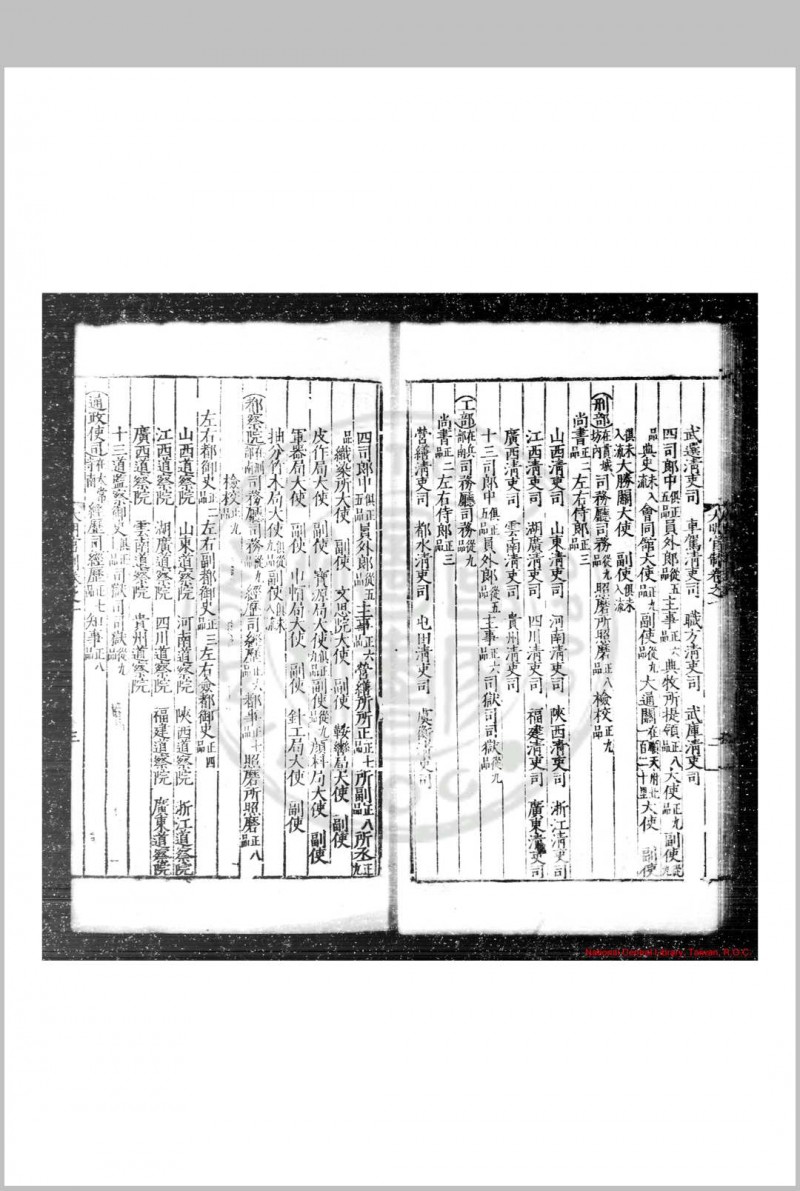 武選清吏司 車駕清吏司 職方清吏司 武庫清吏司
四司郎中俱正五品員外郎從五品主事正六品典牧所提領正八品大使正九品副使從九
品典史未入流會同館大使正九品副使從九品大通關在順天府北一百二十里大使 副使
俱未入流大勝關大使 副使俱未入流
刑部在貫城坊內司務廳司務從九品照磨所照磨正八品檢校正九品
尚書正二品左右侍郎正三品
山西清吏司 山東清吏司 河南清吏司 陝西清吏司 浙江清吏司
江西清吏司 湖廣清吏司 四川清吏司 福建清吏司 廣東清吏司
廣西清吏司 雲南清吏司 貴州清吏司
十三司郎中正五品員外郎從五品主事正六品司獄司司獄從九品
工部在兵部南司務廳司務從九品
尚書正二品左右侍郎正三品
營繕清吏司 都水清吏司 屯田清吏司 虞衡清吏司
四司郎中俱正五品員外郎從五品主事正六品營繕所所正正七品所副正八品所丞正九
品織染所大使 副使 文思院大使 副使 鞍轡局大使 副使
皮作局大使 副使 寶源局大使俱正九品副使從九品顏料局大使 副使
軍器局大使 副使 巾帽局大使 副使 針工局大使 副使
抽分竹木局大使俱從九品副使俱未入流
都察院司務廳司務從九品經歷司經歷正六品都事正七品照磨所照磨正八品
檢校正九品
左右都御史正二品左右副都御史正三品左右僉都御史正四品
山西道察院 山東道察院 河南道察院 陝西道察院 浙江道察院
江西道察院 湖廣道察院 四川道察院 福建道察院 廣東道察院
廣西道察院 雲南道察院 貴州道察院
十三道監察御史俱正七品司獄司司獄從九品
通政使司在太常寺南經歷司經歷正七品知事正八品
National Central Library, Taiwan, R.O.C.